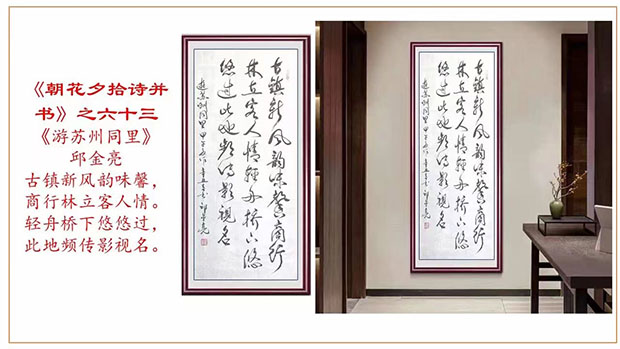 《朝花夕拾诗并
书》之六十三
《游苏州同里》
邱金亮
古镇新风韵味馨，
商行林立客人情。
轻舟桥下悠悠过，
此地频传影视名。
古镇新风韵味馨商行
林立客人情轻舟桥下悠
悠过此地频传影视名
游苏州同里甲午 辛丑 邱金亮
古镇新风韵味馨商行
林立客人情轻舟桥下悠
悠过此地频传影视名
游苏州同里甲午 辛丑 邱金亮